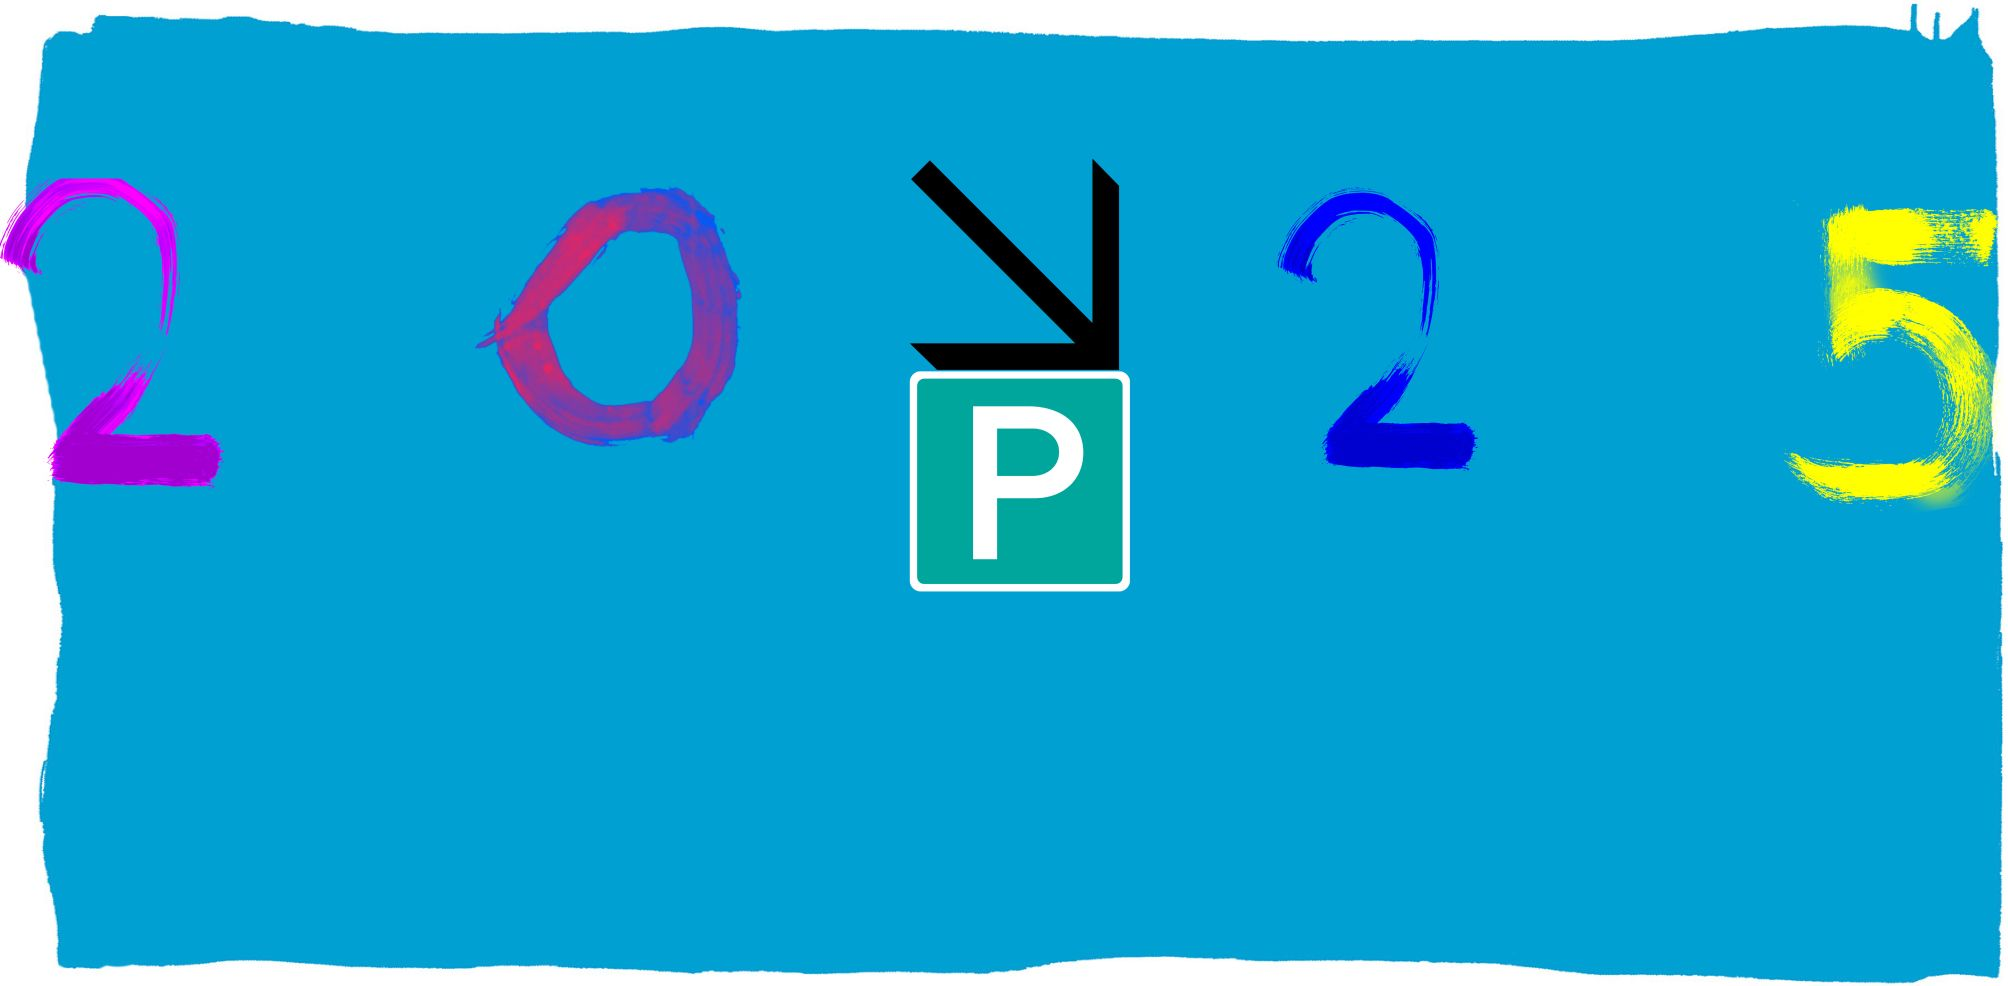 20 25
P